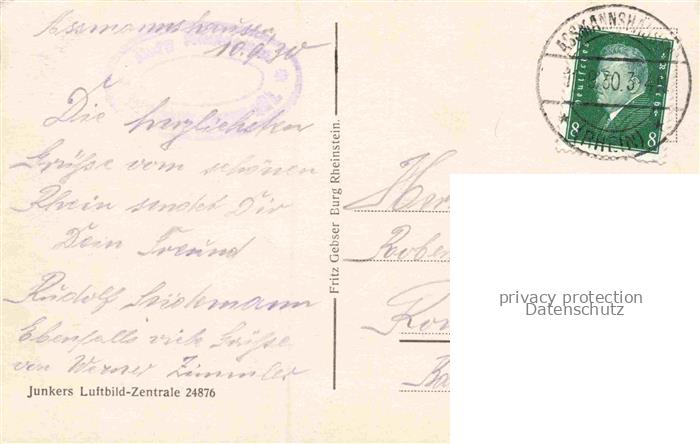 Assmannshausen
10.9.30
Die herzlichsten
Grüsse vom schönen
Rhein sendet Dir
Dein Freund
Rudolf
Ebenfalls viele Grüße
von Werner Zimmler
Junkers Luftbild-Zentrale 24876
Fritz Gebser Burg Rheinstein.
Herr
Rober
Kon
Ba
ASSMANNSHAUSEN
30.3
(RHEIN)
Deutsches Reich
8 8
privacy protection
Datenschutz